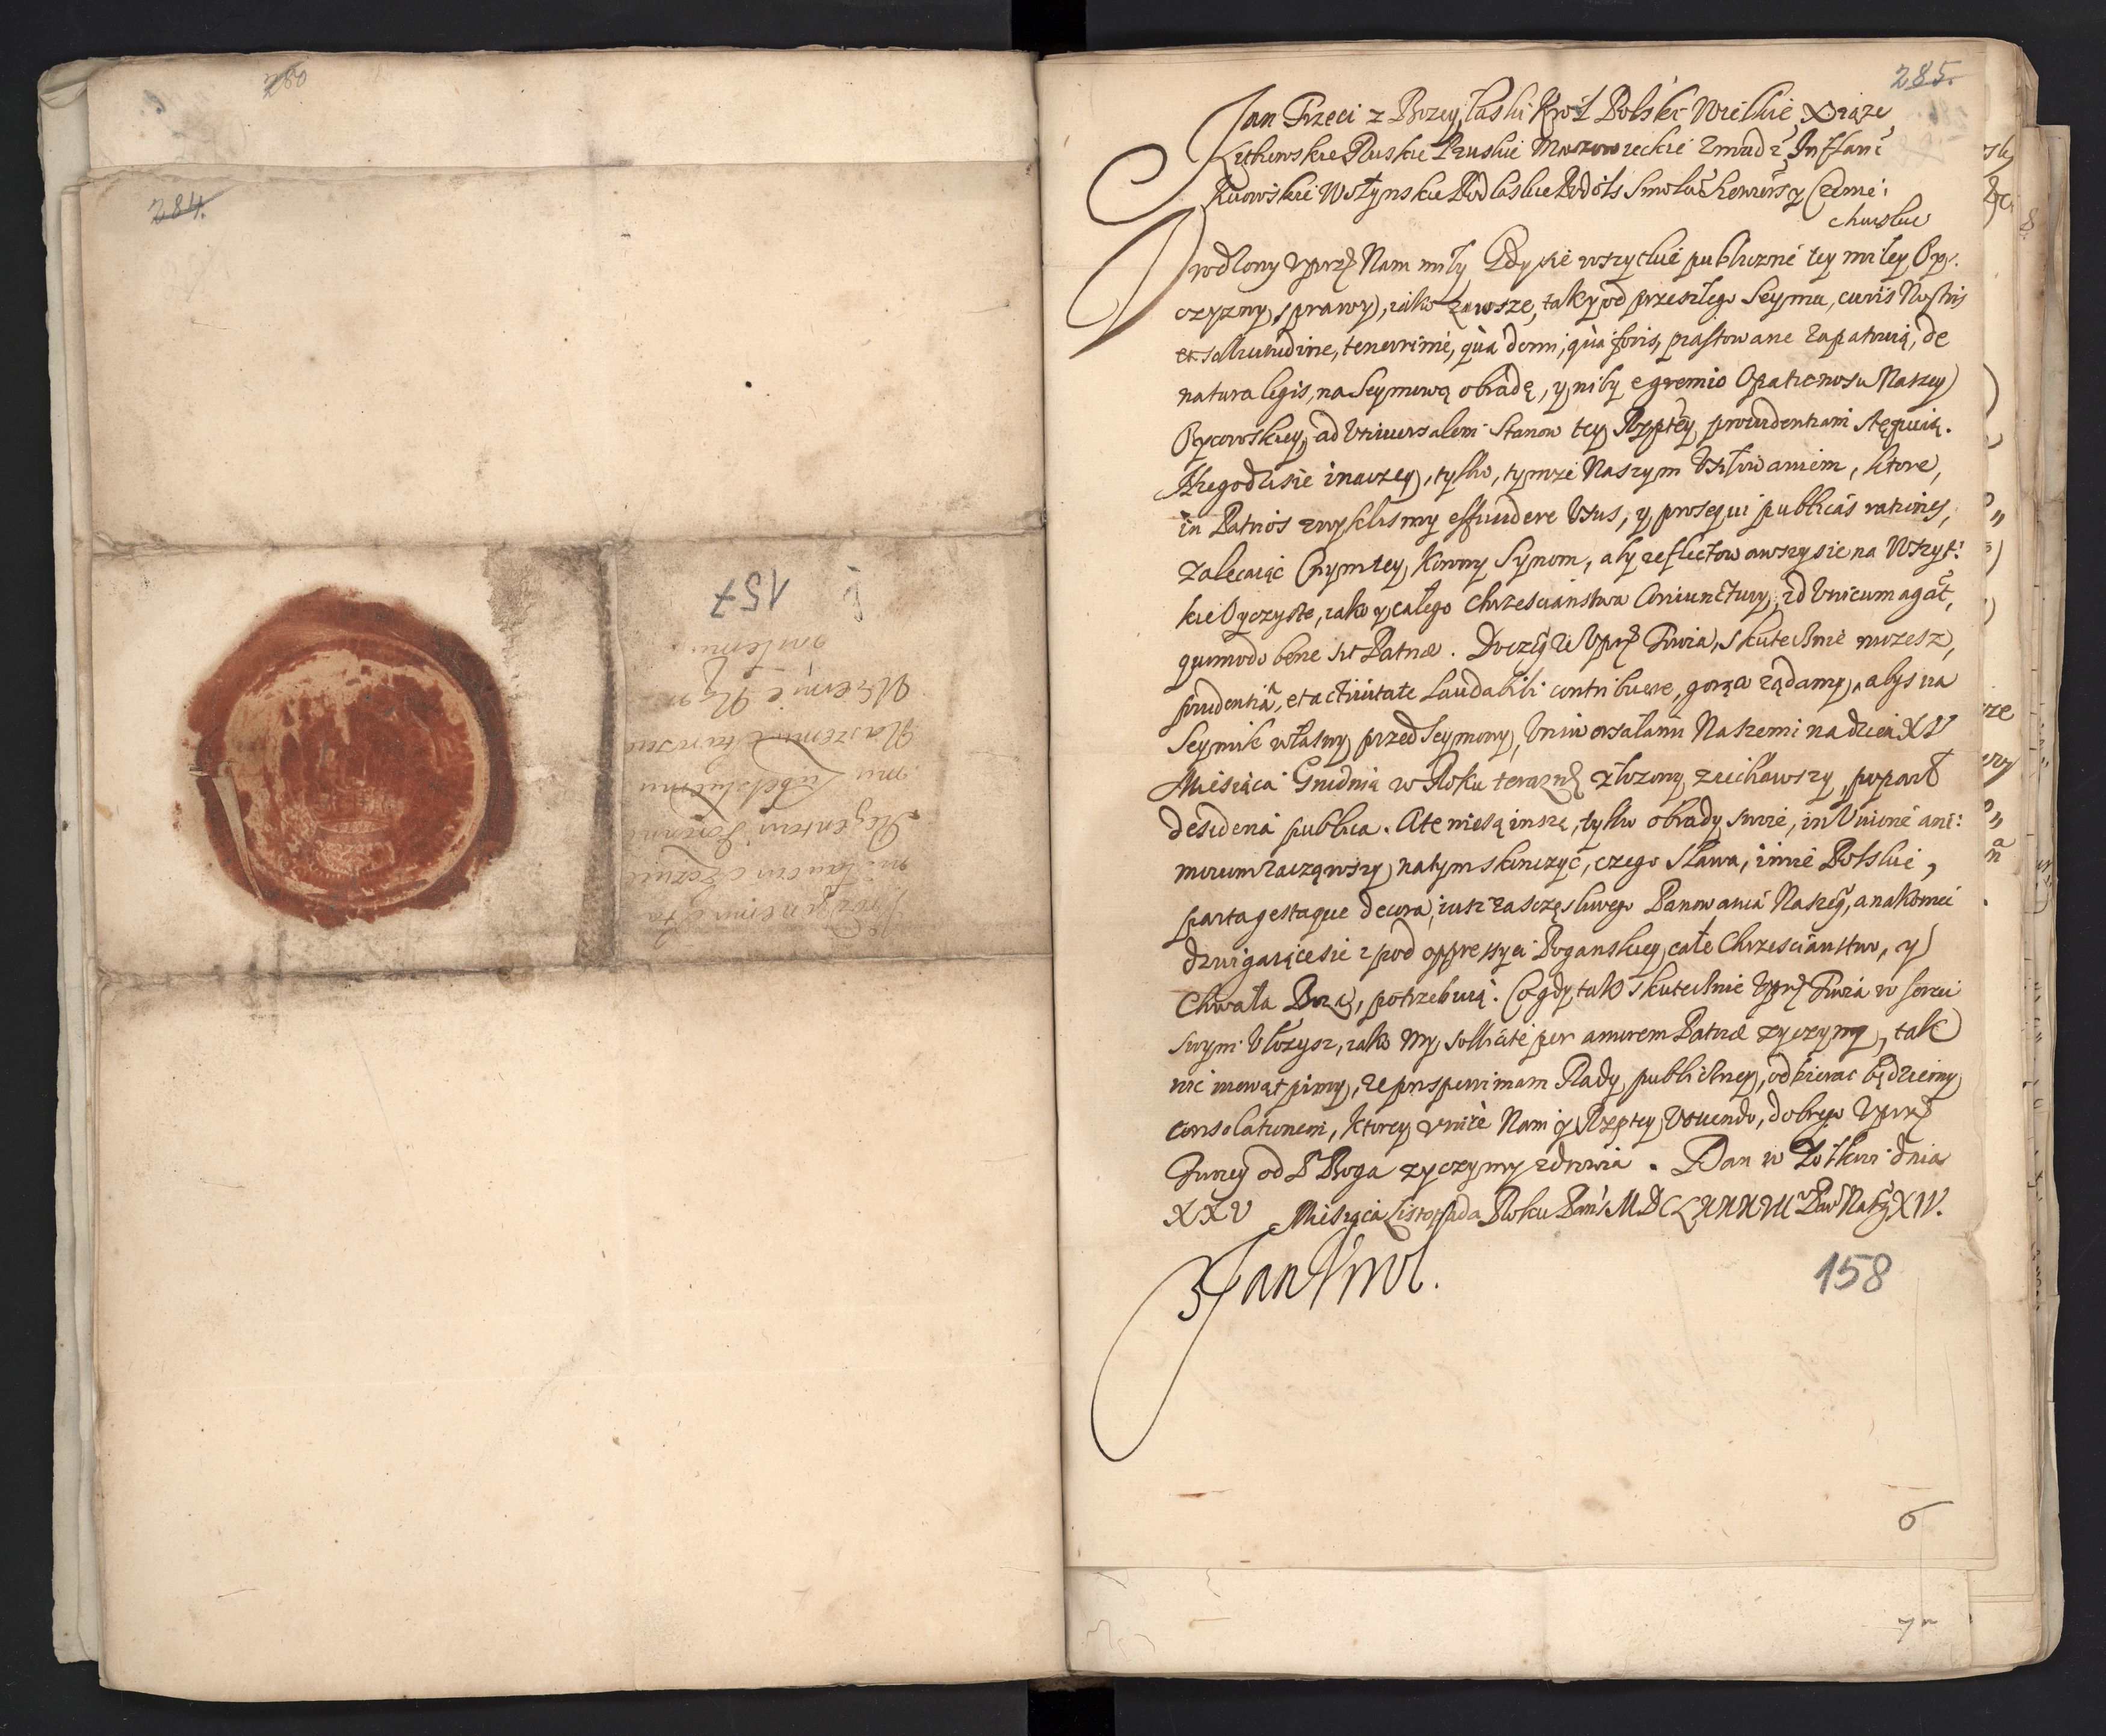 280
284.
157
Urodzonemu Sta
nisławowi Szczuce
Regentowi Koronne
mu Lubelskiemu
Naszemu Staroscie
Uprzeymie Nam
miłemu.
285.
Jan Trzeci z Bozey łaski Krol Polski Wielkie Xiąze
Litewskie Ruskie Pruskie Mazowieckie Zmudz Inflanc
Kiiowskie Wołynskie Podlaskie Podols Smolen Siewiers y Czernie:
chowskie
Urodzony Uprz Nam miły Gdy sie wszytkie publiczne tey miley Oy:
czyzny sprawy, iako zawsze, tak y od przeszłego Seymu, curis Nostris
et solicitudine, tenerrime, qua domi, qua foris, piastowane zapatruią, de
natura legis, na Seymową obradę, y niby e gremio Opatrznosci Naszey
Oycowskiey, ad Universalem Stanow tey Rzptey providentiam stępuią.
Niegodzi sie inaczey, tylko, tymze Naszym Usiłowaniem, ktore,
in Patrios zwyklismy effundere Usus, y prosequi publicas rationes,
zalecaiąc Oney miley Korony Synom, aby reflectowawszy sie na Wszyt:
kie Oyczyste, iako y całego Chrzescianstwa Coniunctury, id Unicum agāt,
quomodo bene sit Patriæ. Do czeg ze Uprz Twoia, skutecznie mozesz,
prudentia, et activitate Laudabili contribuere, gorąco ządamy, abys na
Seymik własny przed Seymowy, Uniwersałami Naszemi na dzien XV
Miesiąca Grudnia w Roku teraznz złozony ziechawszy, poparł
desideria publica. A te nie są insze, tylko obrady swoie, in Unione ani:
morum zacząwszy, na tym skonczyć, czego Sława, imie Polskie,
parta gestaque decora, iusz za szczęsliwego Panowania Naszeg, a nakoniec
dzwigaiące sie z pod oppressyei Poganskiey całe Chrzescianstwo, y
Chwała Boza, potrzebuią. Co gdy tak skutecznie Uprz Twoia w sercu
swym Ułozysz, iako My, sollicite per amorem Patriæ zyczymy, tak
nic niewątpimy, ze prosperrimam Rady publiczney, odbierac będziemy
consolationem, ktorey y nize Nam y Rzptey Vovendo, dobrego Uprz
Twoiey od P Boga zyczymy zdrowia. Dan w Zołkwi dnia
XXV Miesiąca Listopada Roku Pans MDCLXXXVII Pan Nasz XIV.
Jan Krol.
158
6